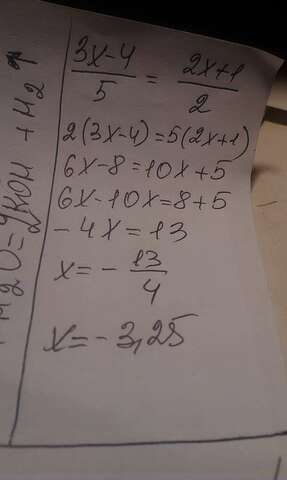 (3x-4)/5 = (2x+1)/2
2(3x-4)=5(2x+1)
6x-8=10x+5
6x-10x=8+5
-4x=13
x=-13/4
x=-3,25
2O=2KOH+H2↑